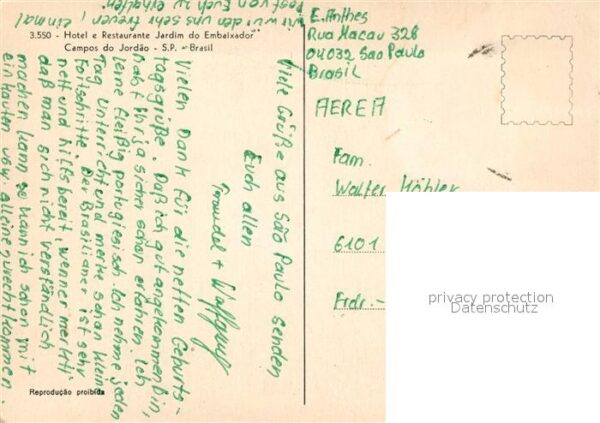 3.550 - Hotel e Restaurante Jardim do Embaixador
Campos do Jordão - S.P. - Brasil
Viele Grüße aus São Paulo senden
Euch allen
Traudel + Wolfgang
Vielen Dank für die netten Geburts-
tagsgrüße. Daß ich gut angekommen bin,
habt Ihr ja sicher schon erfahren. Ich
lerne fleißig portugiesisch. Ich nehme jeden
Tag Unterricht und merke schon kleine
Fortschritte. Der Brasilianer ist sehr
nett und hilfsbereit, wenn er merkt,
daß man sich nicht verständlich
machen kann. So kann ich schon mit
einkaufen usw. alleine zurechtkommen.
Wir würden uns sehr freuen, einmal
Post von Euch zu erhalten.
Reprodução proibida
E. Anthes
Rua Macau 328
04032 Sao Paulo
Brasil
AEREA
Fam.
Walter Köhler
6101
Frdr.-
privacy protection
Datenschutz